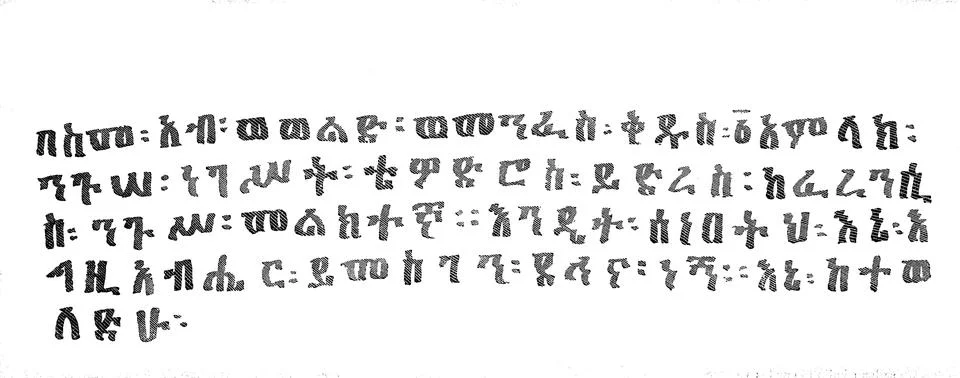 በስመ፡አብ፡ወወልድ፡ወመንፈስ፡ቅዱስ፡፩አምላክ፡
ንጉሠ፡ነገሥት፡ቴዎድሮስ፡ይድረስ፡ከፈረንሲ
ስ፡ንጉሥ፡መልክተኛ፡፡እንዲት፡ሰነበትህ፡እኔ፡እ
ግዚአብሔር፡ይመስገን፡ደኅና፡ነኝ፡፡እኔ፡ከተወ
ለድሁ፡